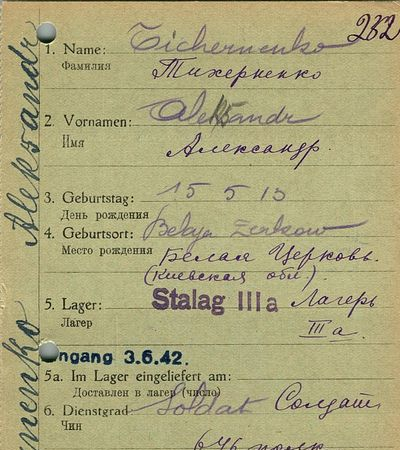 232
1. Name: Tichernenko
Фамилия Тихерненко
2. Vornamen: Aleksandr
Имя Александр.
3. Geburtstag: 15 5 13
День рождения
4. Geburtsort: Belaja Zerkow
Место рождения Белая Церковь.
(Киевская обл).
5. Lager: Stalag IIIa Лагерь
Лагерь IIIа
ngang 3.6.42.
5a. Im Lager eingeliefert am:
Доставлен в лагер (число)
6. Dienstgrad Soldat Солдат
Чин
646 полк
Aleksandr
nenko